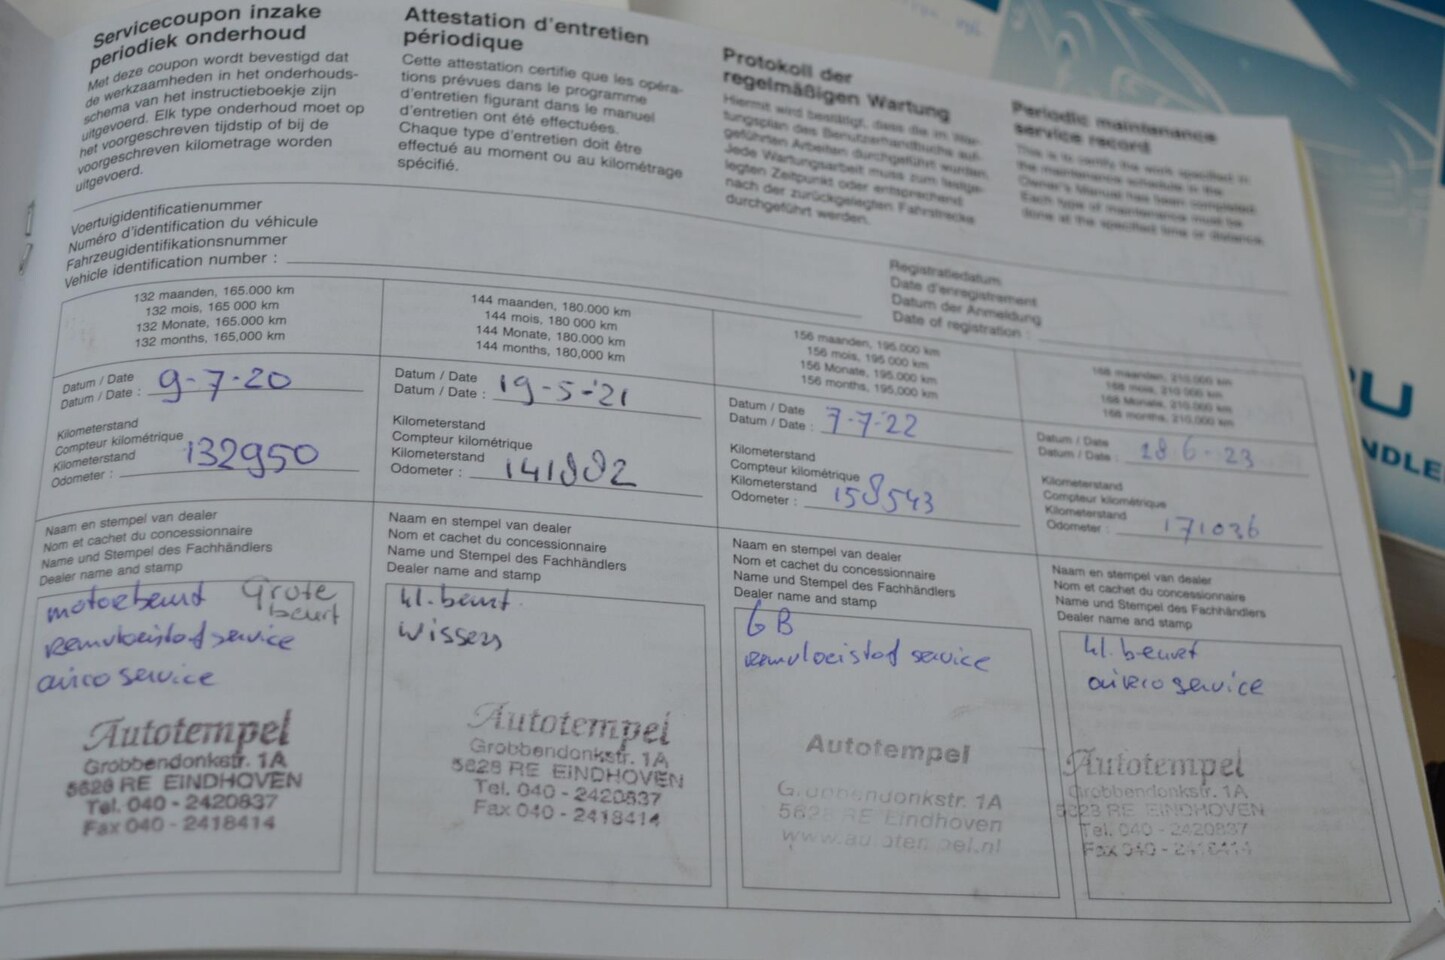 Servicecoupon inzake
periodiek onderhoud
Met deze coupon wordt bevestigd dat
de werkzaamheden in het onderhouds-
schema van het instructieboekje zijn
uitgevoerd. Elk type onderhoud moet op
het voorgeschreven tijdstip of bij de
voorgeschreven kilometrage worden
uitgevoerd.
Attestation d'entretien
périodique
Cette attestation certifie que les opéra-
tions prévues dans le programme
d'entretien figurant dans le manuel
d'entretien ont été effectuées.
Chaque type d'entretien doit être
effectué au moment ou au kilométrage
spécifié.
Protokoll der
regelmäßigen Wartung
Hiermit wird bestätigt, dass die im War-
tungsplan des Benutzerhandbuchs auf-
geführten Arbeiten durchgeführt wurden.
Jede Wartungsarbeit muss zum festge-
legten Zeitpunkt oder entsprechend
nach der zurückgelegten Fahrstrecke
durchgeführt werden.
Periodic maintenance
service record
This is to certify the work specified in
the maintenance schedule in the
Owner's Manual has been completed.
Each type of maintenance must be
done at the specified time or distance.
Voertuigidentificatienummer
Numéro d'identification du véhicule
Fahrzeugidentifikationsnummer
Vehicle identification number :
Registratiedatum
Date d'enregistrement
Datum der Anmeldung
Date of registration :
132 maanden, 165.000 km
132 mois, 165 000 km
132 Monate, 165.000 km
132 months, 165,000 km
Datum / Date
Datum / Date : 9-7-20
Kilometerstand
Compteur kilométrique
Kilometerstand
Odometer : 132950
Naam en stempel van dealer
Nom et cachet du concessionnaire
Name und Stempel des Fachhändlers
Dealer name and stamp
motorbeurt Grote
beurt
remvloeistof service
airco service
Autotempel
Grobbendonkstr. 1A
5628 RE EINDHOVEN
Tel. 040 - 2420837
Fax 040 - 2418414
144 maanden, 180.000 km
144 mois, 180 000 km
144 Monate, 180.000 km
144 months, 180,000 km
Datum / Date
Datum / Date : 19-5-'21
Kilometerstand
Compteur kilométrique
Kilometerstand
Odometer : 141882
Naam en stempel van dealer
Nom et cachet du concessionnaire
Name und Stempel des Fachhändlers
Dealer name and stamp
kl. beurt
wissers
Autotempel
Grobbendonkstr. 1A
5628 RE EINDHOVEN
Tel. 040 - 2420837
Fax 040 - 2418414
156 maanden, 195.000 km
156 mois, 195 000 km
156 Monate, 195.000 km
156 months, 195,000 km
Datum / Date
Datum / Date : 7-7-22
Kilometerstand
Compteur kilométrique
Kilometerstand
Odometer : 158543
Naam en stempel van dealer
Nom et cachet du concessionnaire
Name und Stempel des Fachhändlers
Dealer name and stamp
GB
remvloeistof service
Autotempel
Grobbendonkstr. 1A
5628 RE Eindhoven
www.autotempel.nl
168 maanden, 210.000 km
168 mois, 210 000 km
168 Monate, 210.000 km
168 months, 210,000 km
Datum / Date
Datum / Date : 28 6-23
Kilometerstand
Compteur kilométrique
Kilometerstand
Odometer : 171036
Naam en stempel van dealer
Nom et cachet du concessionnaire
Name und Stempel des Fachhändlers
Dealer name and stamp
kl. beurt
airco service
Autotempel
Grobbendonkstr. 1A
5628 RE EINDHOVEN
Tel. 040 - 2420837
Fax 040 - 2418414
RU
NDLE